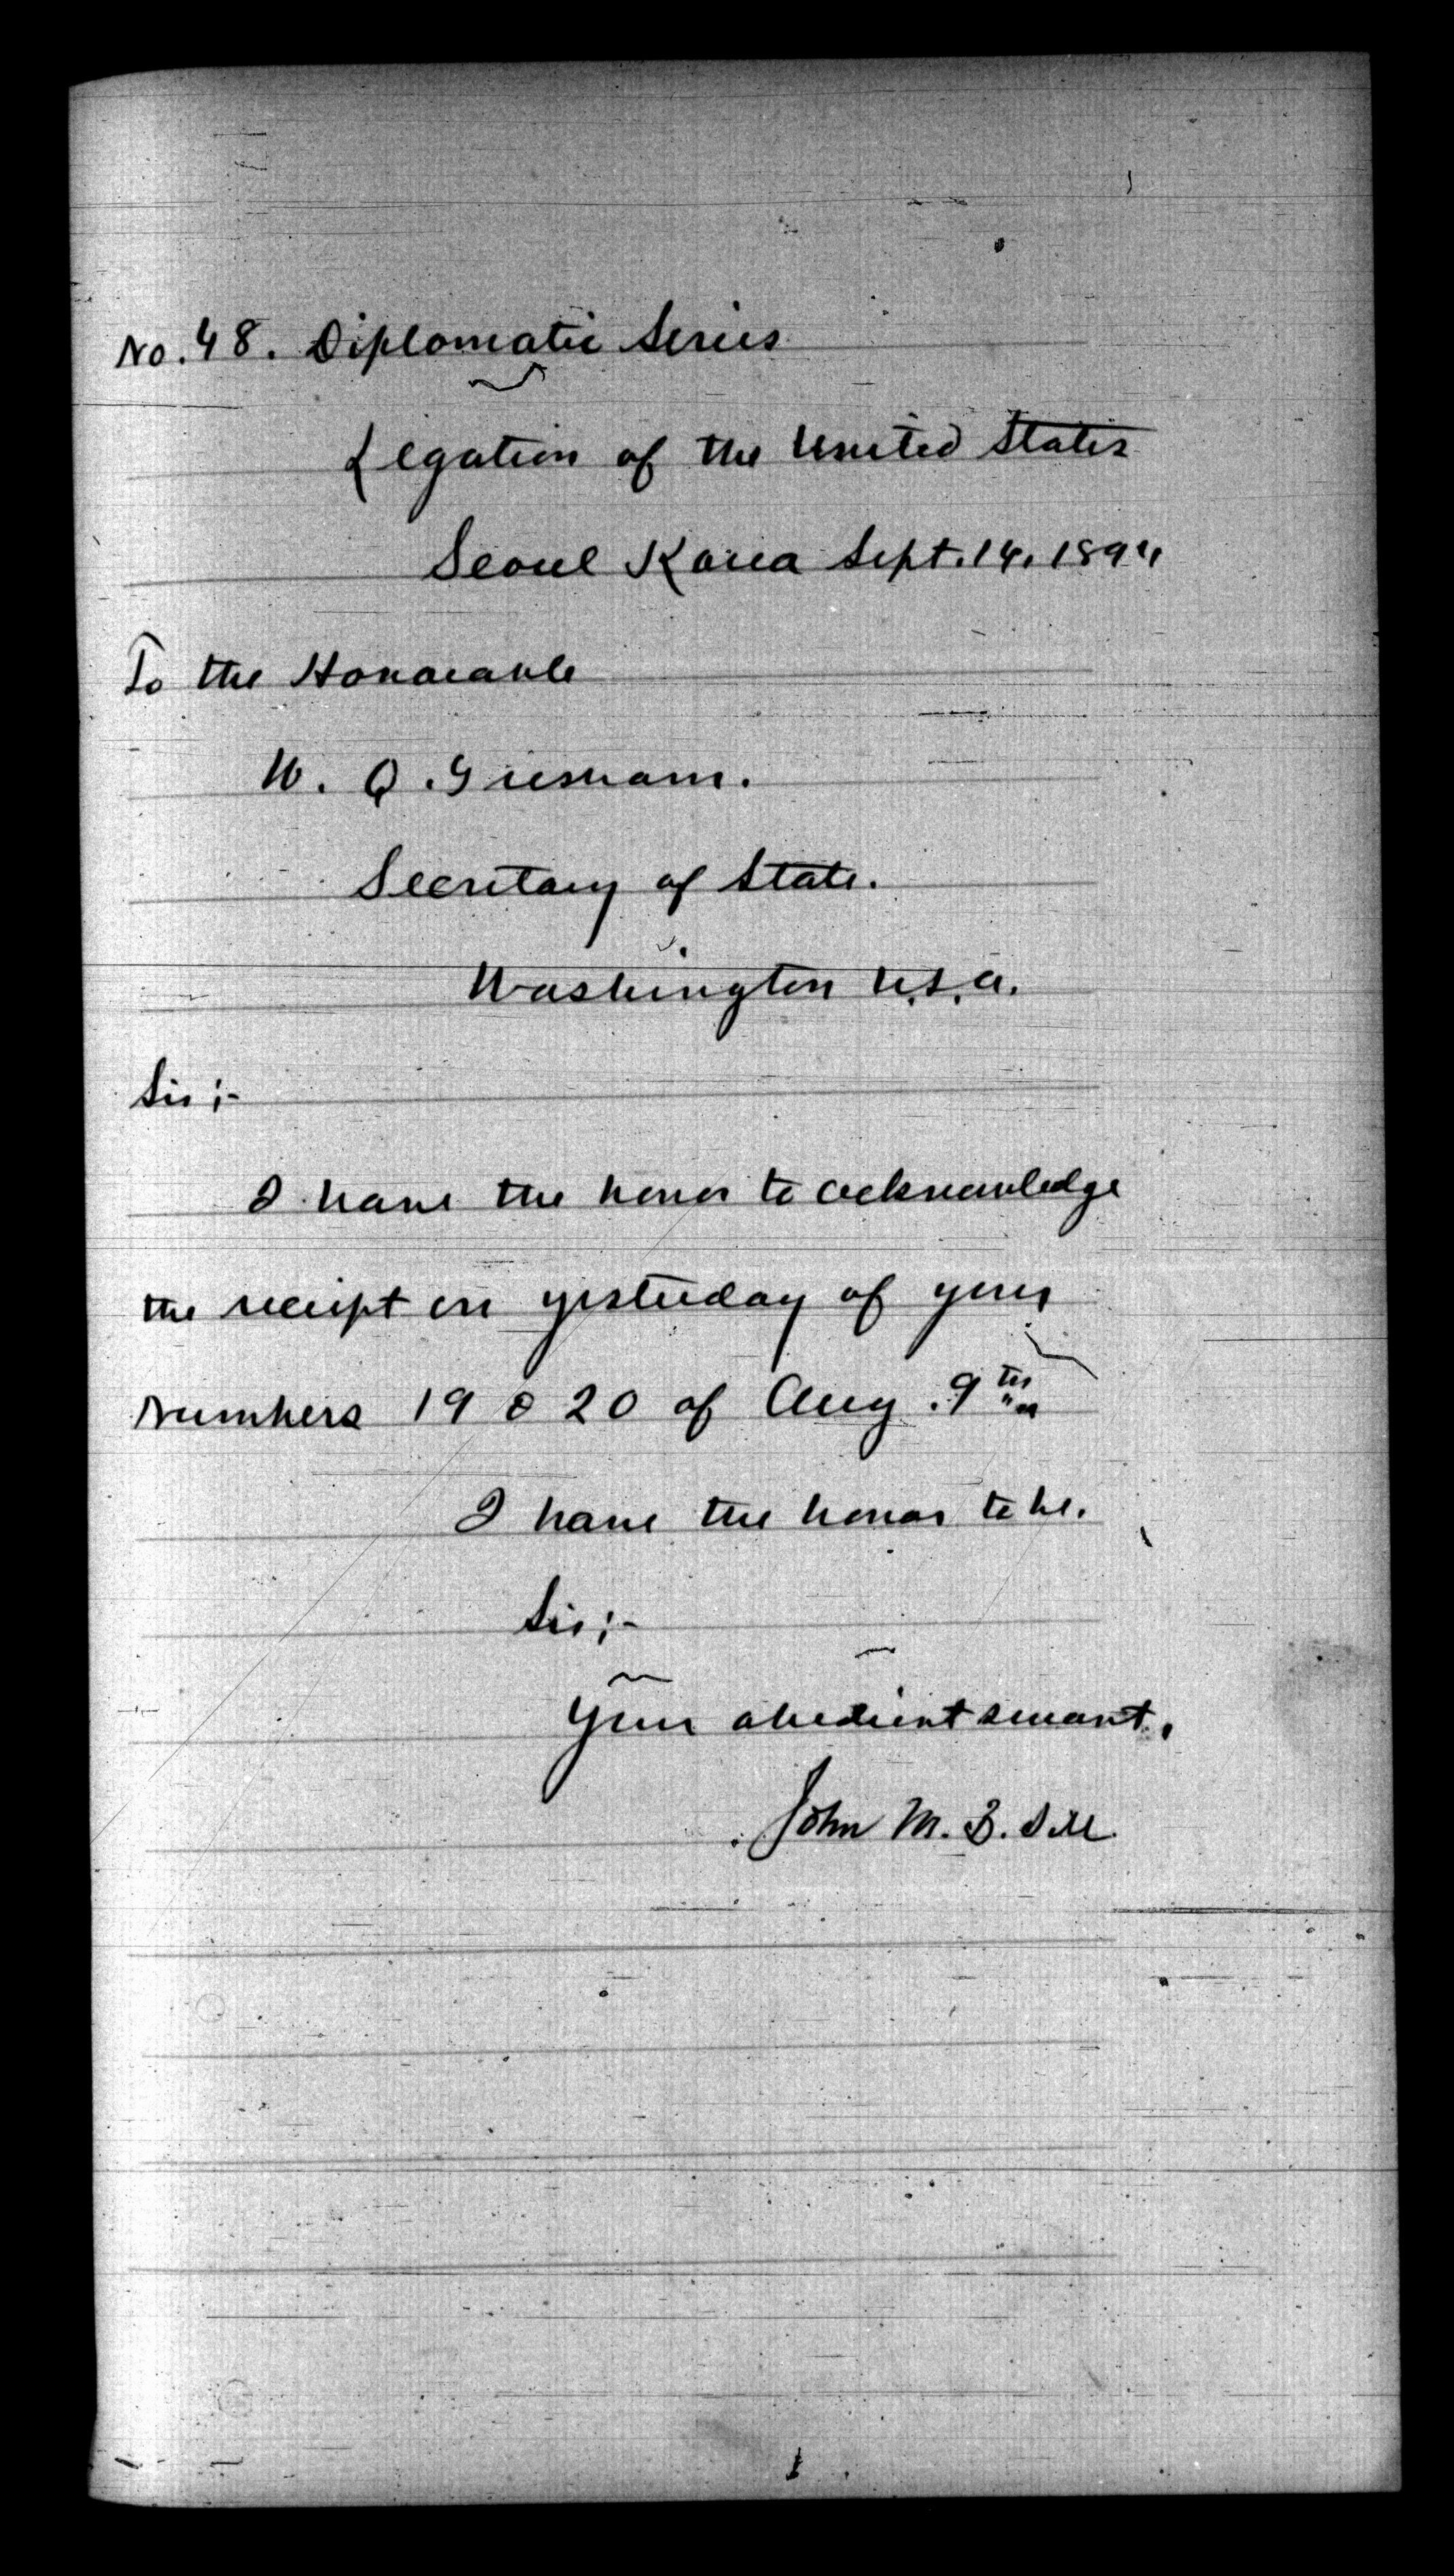 No. 48. Diplomatic Series
Legation of the United States
Seoul Korea Sept. 14, 1894
To the Honorable
W. Q. Gresham.
Secretary of State.
Washington U.S.A.
Sir;-
I have the honor to acknowledge
the receipt on yesterday of your
Numbers 19 & 20 of Aug. 9th
I have the honor to be.
Sir;-
Your obedient servant.
John M. B. Sill